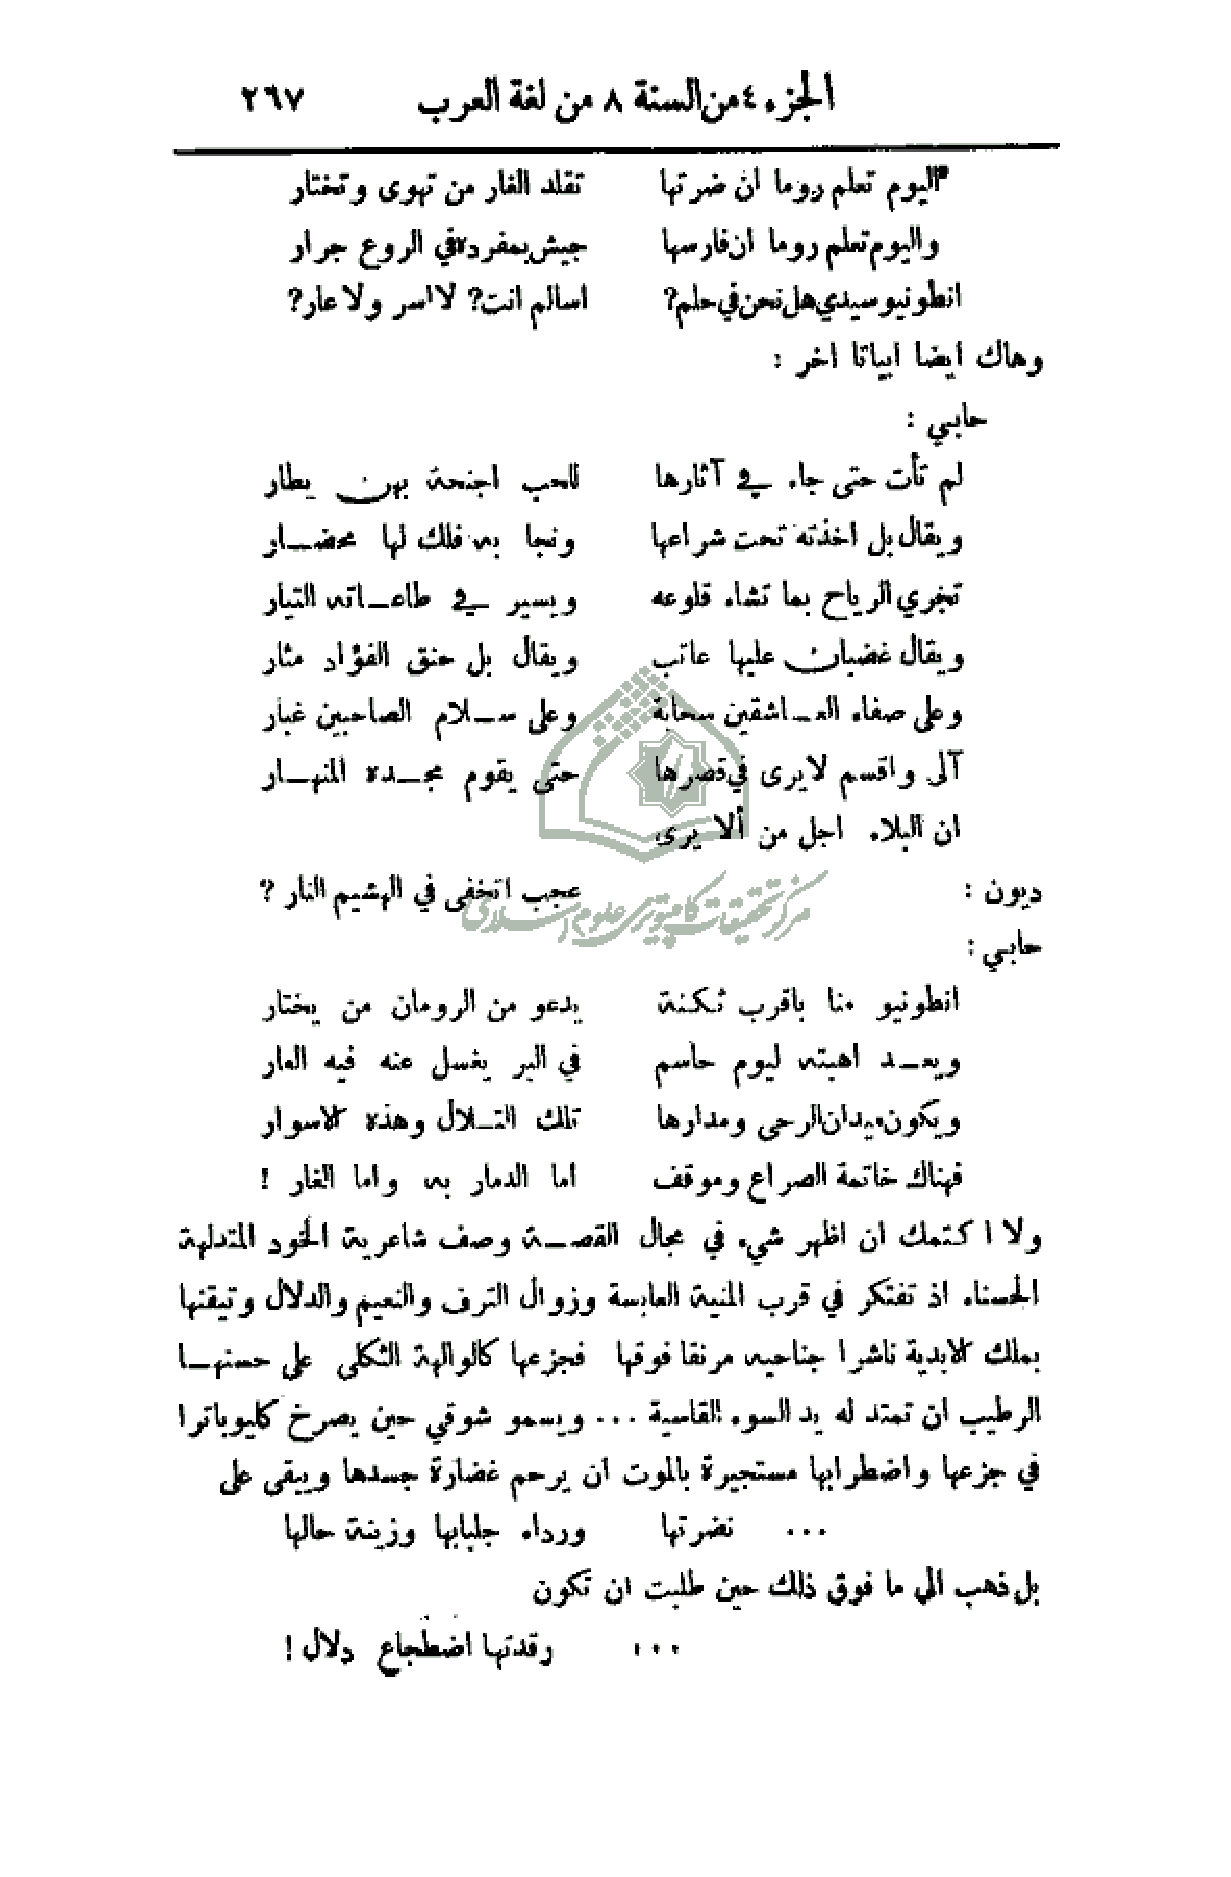 الجزء ٤ من السنة ٨ من لغة العرب ٢٦٧
اليوم تعلم روما ان ضرتها تقلد الغار من تهوى وتختار
واليوم تعلم روما ان فارسها جيش بمفرده في الروع جرار
انطونيو سيدي هل نحن في حلم؟ اسالم انت؟ لا اسر ولا عار؟
وهاك ايضا ابياتا اخر :
حابي :
لم تأت حتى جاء في آثارها للحب اجنحة بهن يطار
ويقال بل اخذته تحت شراعها ونجا به فلك لها محضـار
تجري الرياح بما تشاء قلوعه ويسير في طاعـاته التيار
ويقال غضبان عليها عاتب ويقال بل حنق الفؤاد مثار
وعلى صفاء العـاشقين سحابة وعلى سـلام الصاحبين غبار
آلى واقسم لا يرى في قصرها حتى يقوم مجـده المنهـار
ان البلاء اجل من ألا يرى
ديون : عجب اتخفى في الهشيم النار ؟
حابي :
انطونيو منا باقرب ثكنة يدعو من الرومان من يختار
ويعـد اهبته ليوم حاسم في البر يغسل عنه فيه العار
ويكون ميدان الرحى ومدارها تلك التـلال وهذه الاسوار
فهناك خاتمة الصراع وموقف اما الدمار به واما الغار !
ولا اكتمك ان اظهر شيء في مجال القصـة وصف شاعرية الخود المتدلهة
الحسناء اذ تفتكر في قرب المنية العابسة وزوال الترف والنعيم والدلال وتيقنها
بملك الابدية ناشرا جناحيه مرنقا فوقها فجزعها كالوالهة الثكلى على حسنهـا
الرطيب ان تمتد له يد السوء القاسية ... ويسمو شوقي حين يصرخ كليوباترا
في جزعها واضطرابها مستجيرة بالموت ان يرحم غضارة جسدها ويبقى على
... نضرتها ورداء جلبابها وزينة حالها
بل ذهب الى ما فوق ذلك حين طلبت ان تكون
... رقدتها اضطجاع دلال !
مركز تحقيقات كامپيوترى علوم اسلامى